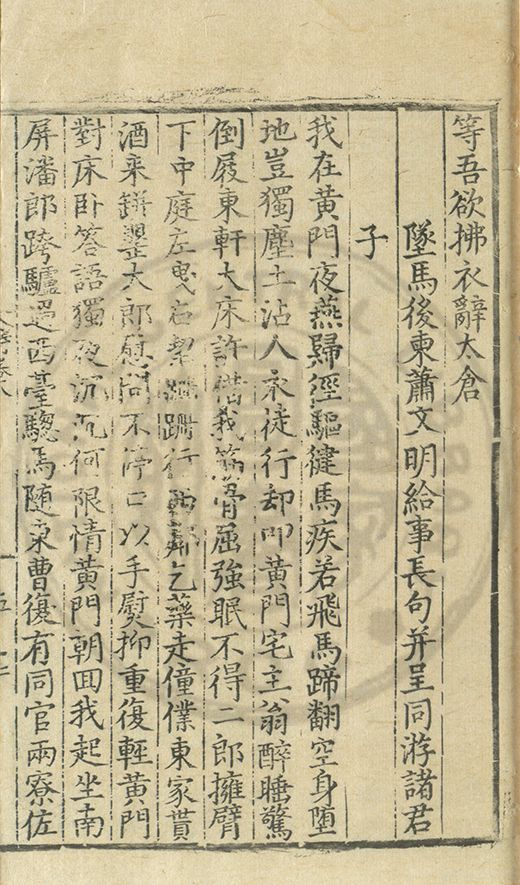 等吾欲拂衣辭太倉
墜馬後柬蕭文明給事長句并呈同游諸君
子
我在黃門夜燕歸徑驅健馬疾若飛馬蹄翻空身墮
地豈獨塵土沾人衣徒行却叩黃門宅主翁醉睡驚
倒屐東軒大床許借我筋骨屈強眠不得二郎擁臂
下中庭左曳右挈蹣跚行西鄰乞藥走僮僕東家貰
酒來缾罌大郎慰問不停口以手熨抑重復輕黃門
對床臥答語獨夜沉沉何限情黃門朝回我起坐南
屏潘郎跨驢過西臺驄馬隨東曹復有同官兩寮佐